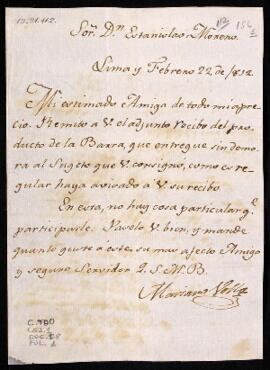 17.21.112.
112
156
Sor. Dn. Estanislao Moreno.
Lima y Febrero 22 de 1812.
Mi estimado Amigo de todo mi apre-
cio. Remito a V. el adjunto recibo del pro-
ducto de la Barra, que entregue sin demo-
ra al Sugeto que V. consignó, como es re-
gular haya avisado a V. su recibo.
En esta, no hay cosa particular q.e
participarle. Paselo V. bien, y mande
quanto guste á este su mas afecto Amigo
y seguro Servidor Q. S. M. B.
Mariano